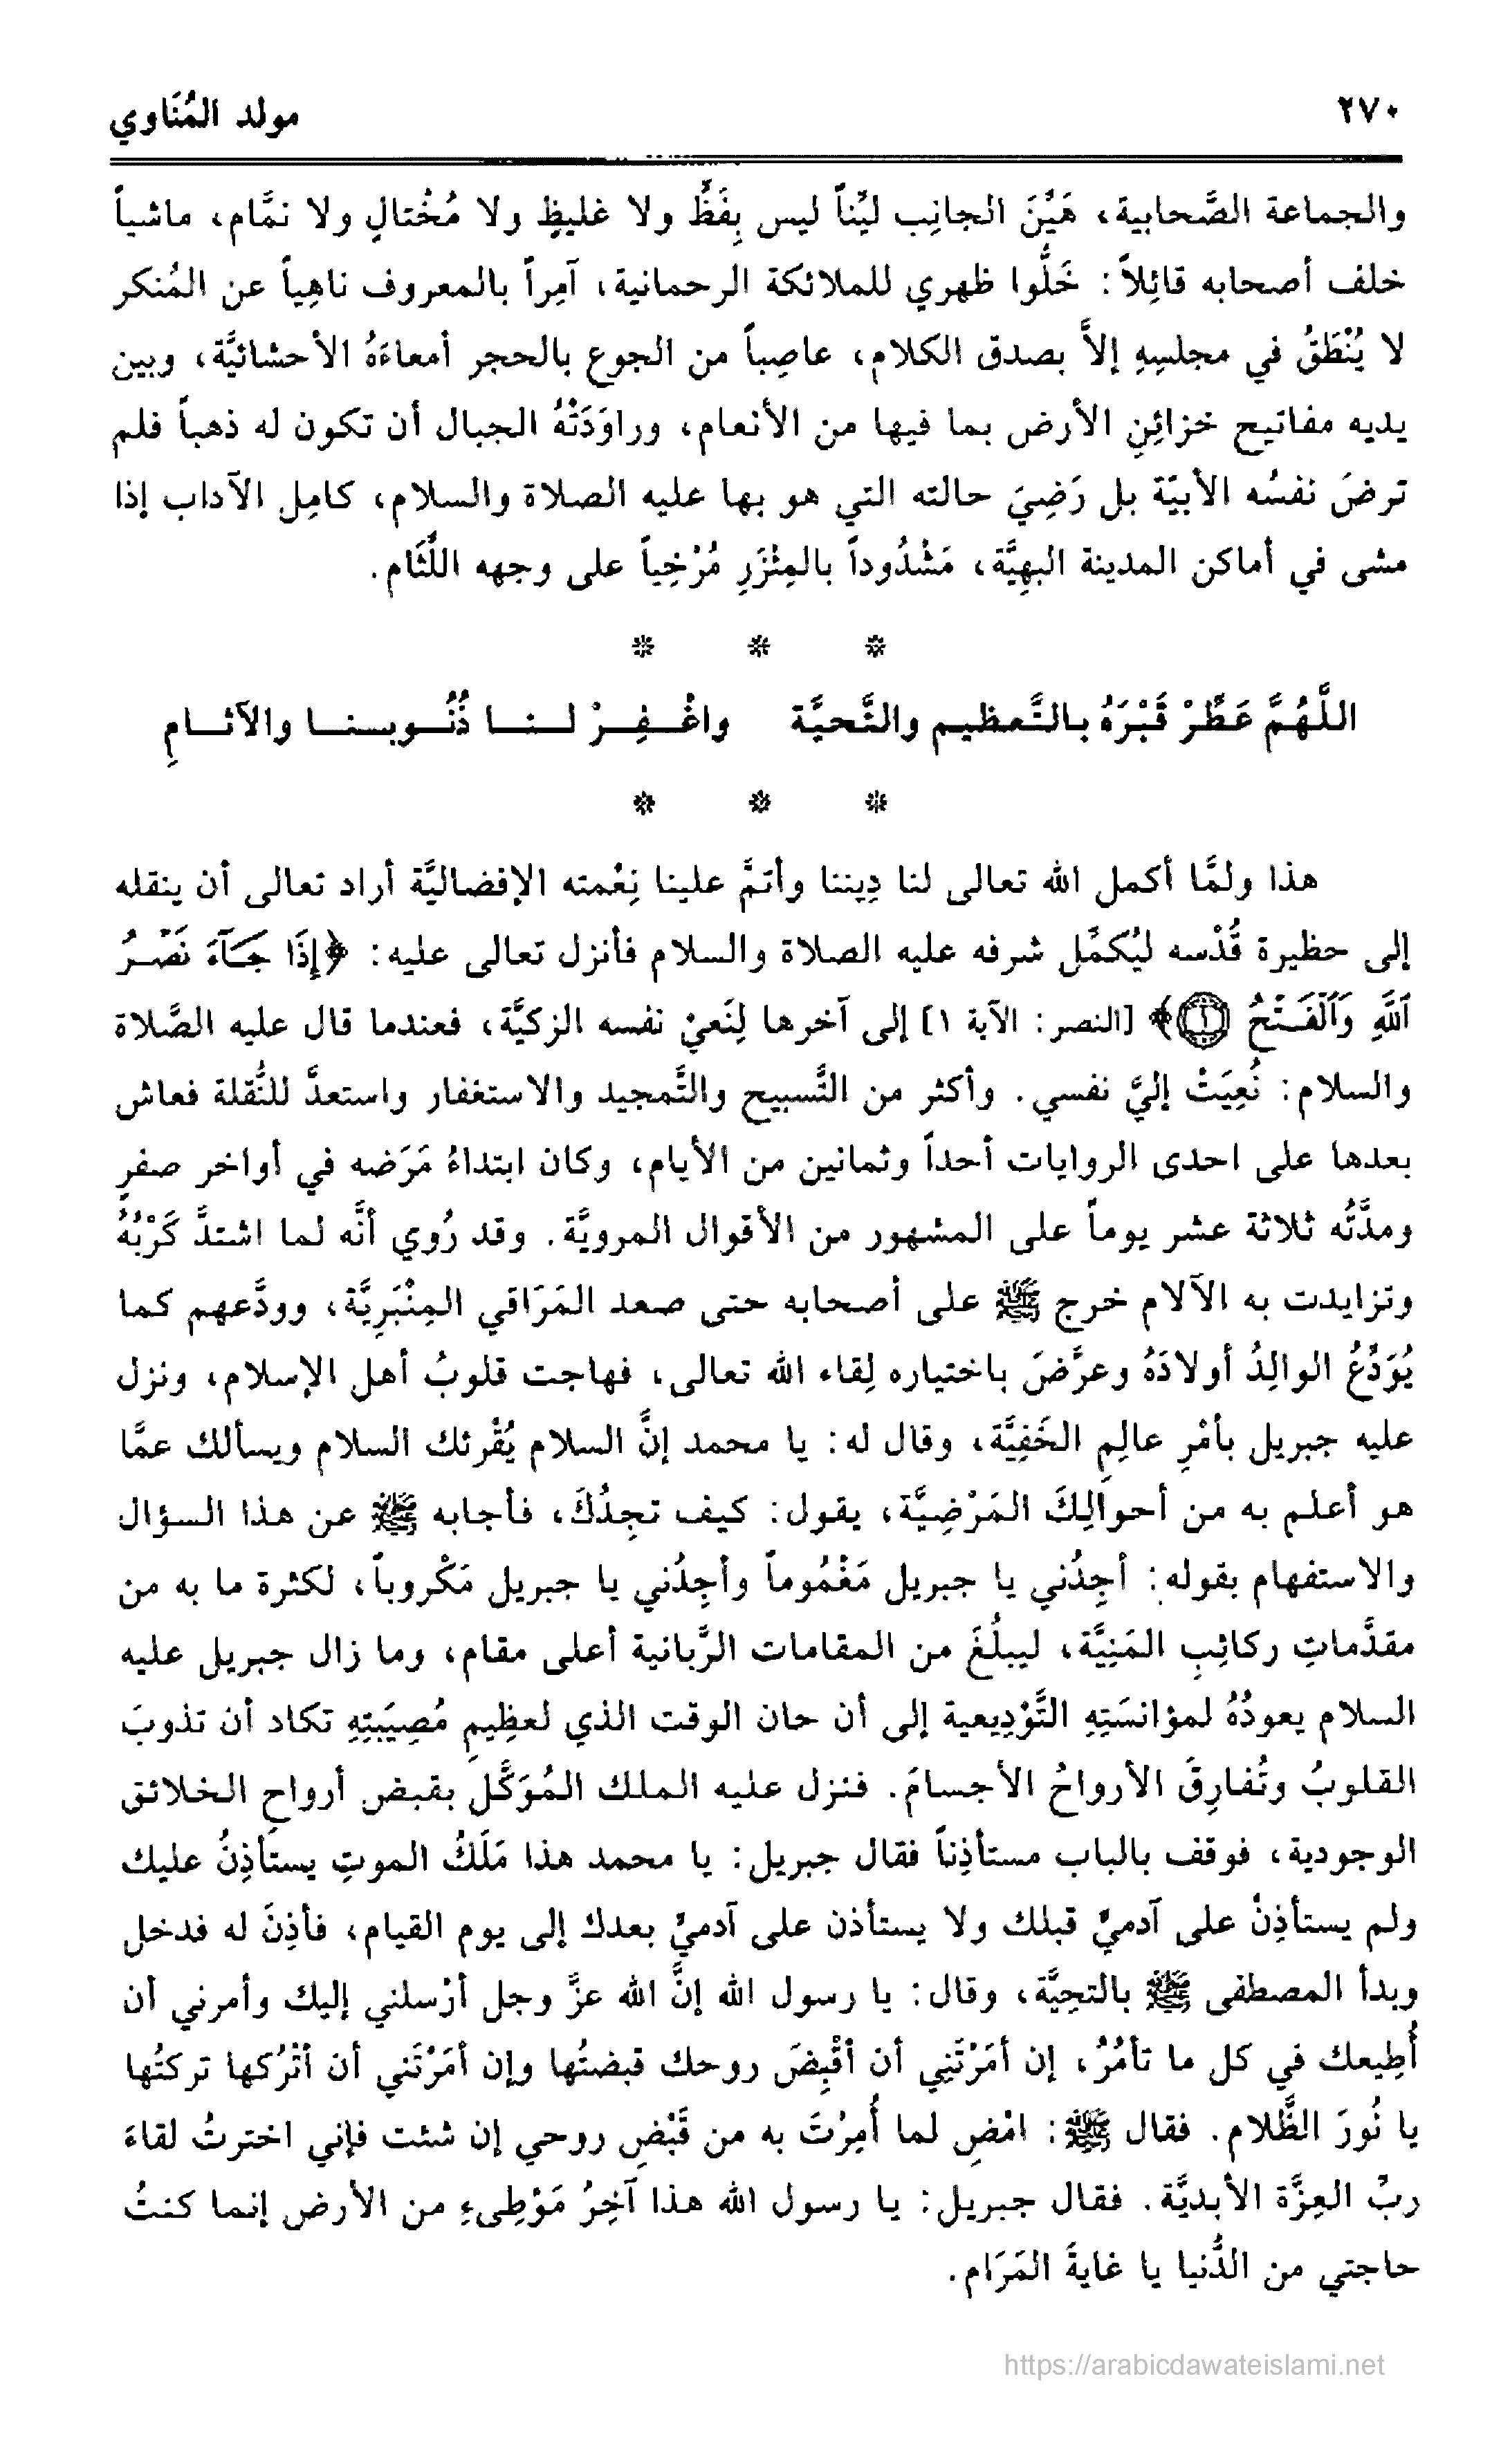 ٢٧٠
مولد المُنَاوي
والجماعة الصَّحابية، هَيِّنَ الجانِب ليِّناً ليس بِفَظٍّ ولا غليظٍ ولا مُخْتالٍ ولا نمَّام، ماشياً
خلف أصحابه قائِلاً: خَلُّوا ظهري للملائكة الرحمانية، آمِراً بالمعروف ناهِياً عن المُنكر
لا يُنْطَقُ في مجلسِهِ إلاَّ بصدق الكلام، عاصِباً من الجوع بالحجر أمعاءَهُ الأحشائيَّة، وبين
يديه مفاتيح خزائِنِ الأرض بما فيها من الأنعام، وراوَدَتْهُ الجبال أن تكون له ذهباً فلم
ترضَ نفسُه الأبيّة بل رَضِيَ حالته التي هو بها عليه الصلاة والسلام، كامِل الآداب إذا
مشى في أماكن المدينة البهِيَّة، مَشْدُوداً بالمِئْزَرِ مُرْخِياً على وجهه اللِّثَام.
* * *
اللَّهُمَّ عَطِّرْ قَبْرَهُ بالتَّعظيم والتَّحيَّة واغْفِرْ لنا ذُنُوبنا والآثامِ
* * *
هذا ولمَّا أكمل الله تعالى لنا دِيننا وأتمَّ علينا نِعْمته الإفضاليَّة أراد تعالى أن ينقله
إلى حظيرة قُدْسه ليُكمِّل شرفه عليه الصلاة والسلام فأنزل تعالى عليه: ﴿إِذَا جَآءَ نَصْرُ
ٱللَّهِ وَٱلْفَتْحُ ۝١﴾ [النصر: الآية ١] إلى آخرها لِنَعيْ نفسه الزكيَّة، فعندما قال عليه الصَّلاة
والسلام: نُعِيَتْ إليَّ نفسي. وأكثر من التَّسبيح والتَّمجيد والاستغفار واستعدَّ للنُّقلة فعاش
بعدها على احدى الروايات أحداً وثمانين من الأيام، وكان ابتداءُ مَرَضه في أواخر صفرٍ
ومدَّتُه ثلاثة عشر يوماً على المشهور من الأقوال المرويَّة. وقد رُوي أنَّه لما اشتدَّ كَرْبُهُ
وتزايدت به الآلام خرج ﷺ على أصحابه حتى صعد المَرَاقي المِنْبَرِيَّة، وودَّعهم كما
يُوَدِّعُ الوالِدُ أولادَهُ وعرَّضَ باختياره لِقاء الله تعالى، فهاجت قلوبُ أهل الإسلام، ونزل
عليه جبريل بأمْرِ عالِمِ الخَفِيَّة، وقال له: يا محمد إنَّ السلام يُقْرئك السلام ويسألك عمَّا
هو أعلم به من أحوالِكَ المَرْضِيَّة، يقول: كيف تجِدُكَ، فأجابه ﷺ عن هذا السؤال
والاستفهام بقوله: أجِدُني يا جبريل مَغْمُوماً وأجِدُني يا جبريل مَكْروباً، لكثرة ما به من
مقدَّماتِ ركائِبِ المَنِيَّة، ليبلُغَ من المقامات الرَّبانية أعلى مقام، وما زال جبريل عليه
السلام يعودُهُ لمؤانسَتِهِ التَّوْدِيعية إلى أن حان الوقت الذي لعظِيمِ مُصِيَبتِهِ تكاد أن تذوبَ
القلوبُ وتُفارِقَ الأرواحُ الأجسامَ. فنزل عليه الملك المُوَكَّل بقبض أرواح الخلائق
الوجودية، فوقف بالباب مستأذِناً فقال جبريل: يا محمد هذا مَلَكُ الموتِ يستأذِنُ عليك
ولم يستأذِنْ على آدميٍّ قبلك ولا يستأذن على آدميٍّ بعدك إلى يوم القيام، فأذِنَ له فدخل
وبدأ المصطفى ﷺ بالتحِيَّة، وقال: يا رسول الله إنَّ الله عزَّ وجل أرْسلني إليك وأمرني أن
أُطِيعك في كل ما تأمُرُ، إن أمَرْتَنِي أن أقْبِضَ روحك قبضتُها وإن أمَرْتَني أن أتْرُكها تركتُها
يا نُورَ الظَّلام. فقال ﷺ: امْضِ لما أُمِرْتَ به من قَبْضِ روحي إن شئت فإني اخترتُ لقاءَ
ربِّ العِزَّة الأبديَّة. فقال جبريل: يا رسول الله هذا آخِرُ مَوْطِىءِ من الأرض إنما كنتُ
حاجتي من الدُّنيا يا غايةَ المَرَام.
https://arabicdawateislami.net